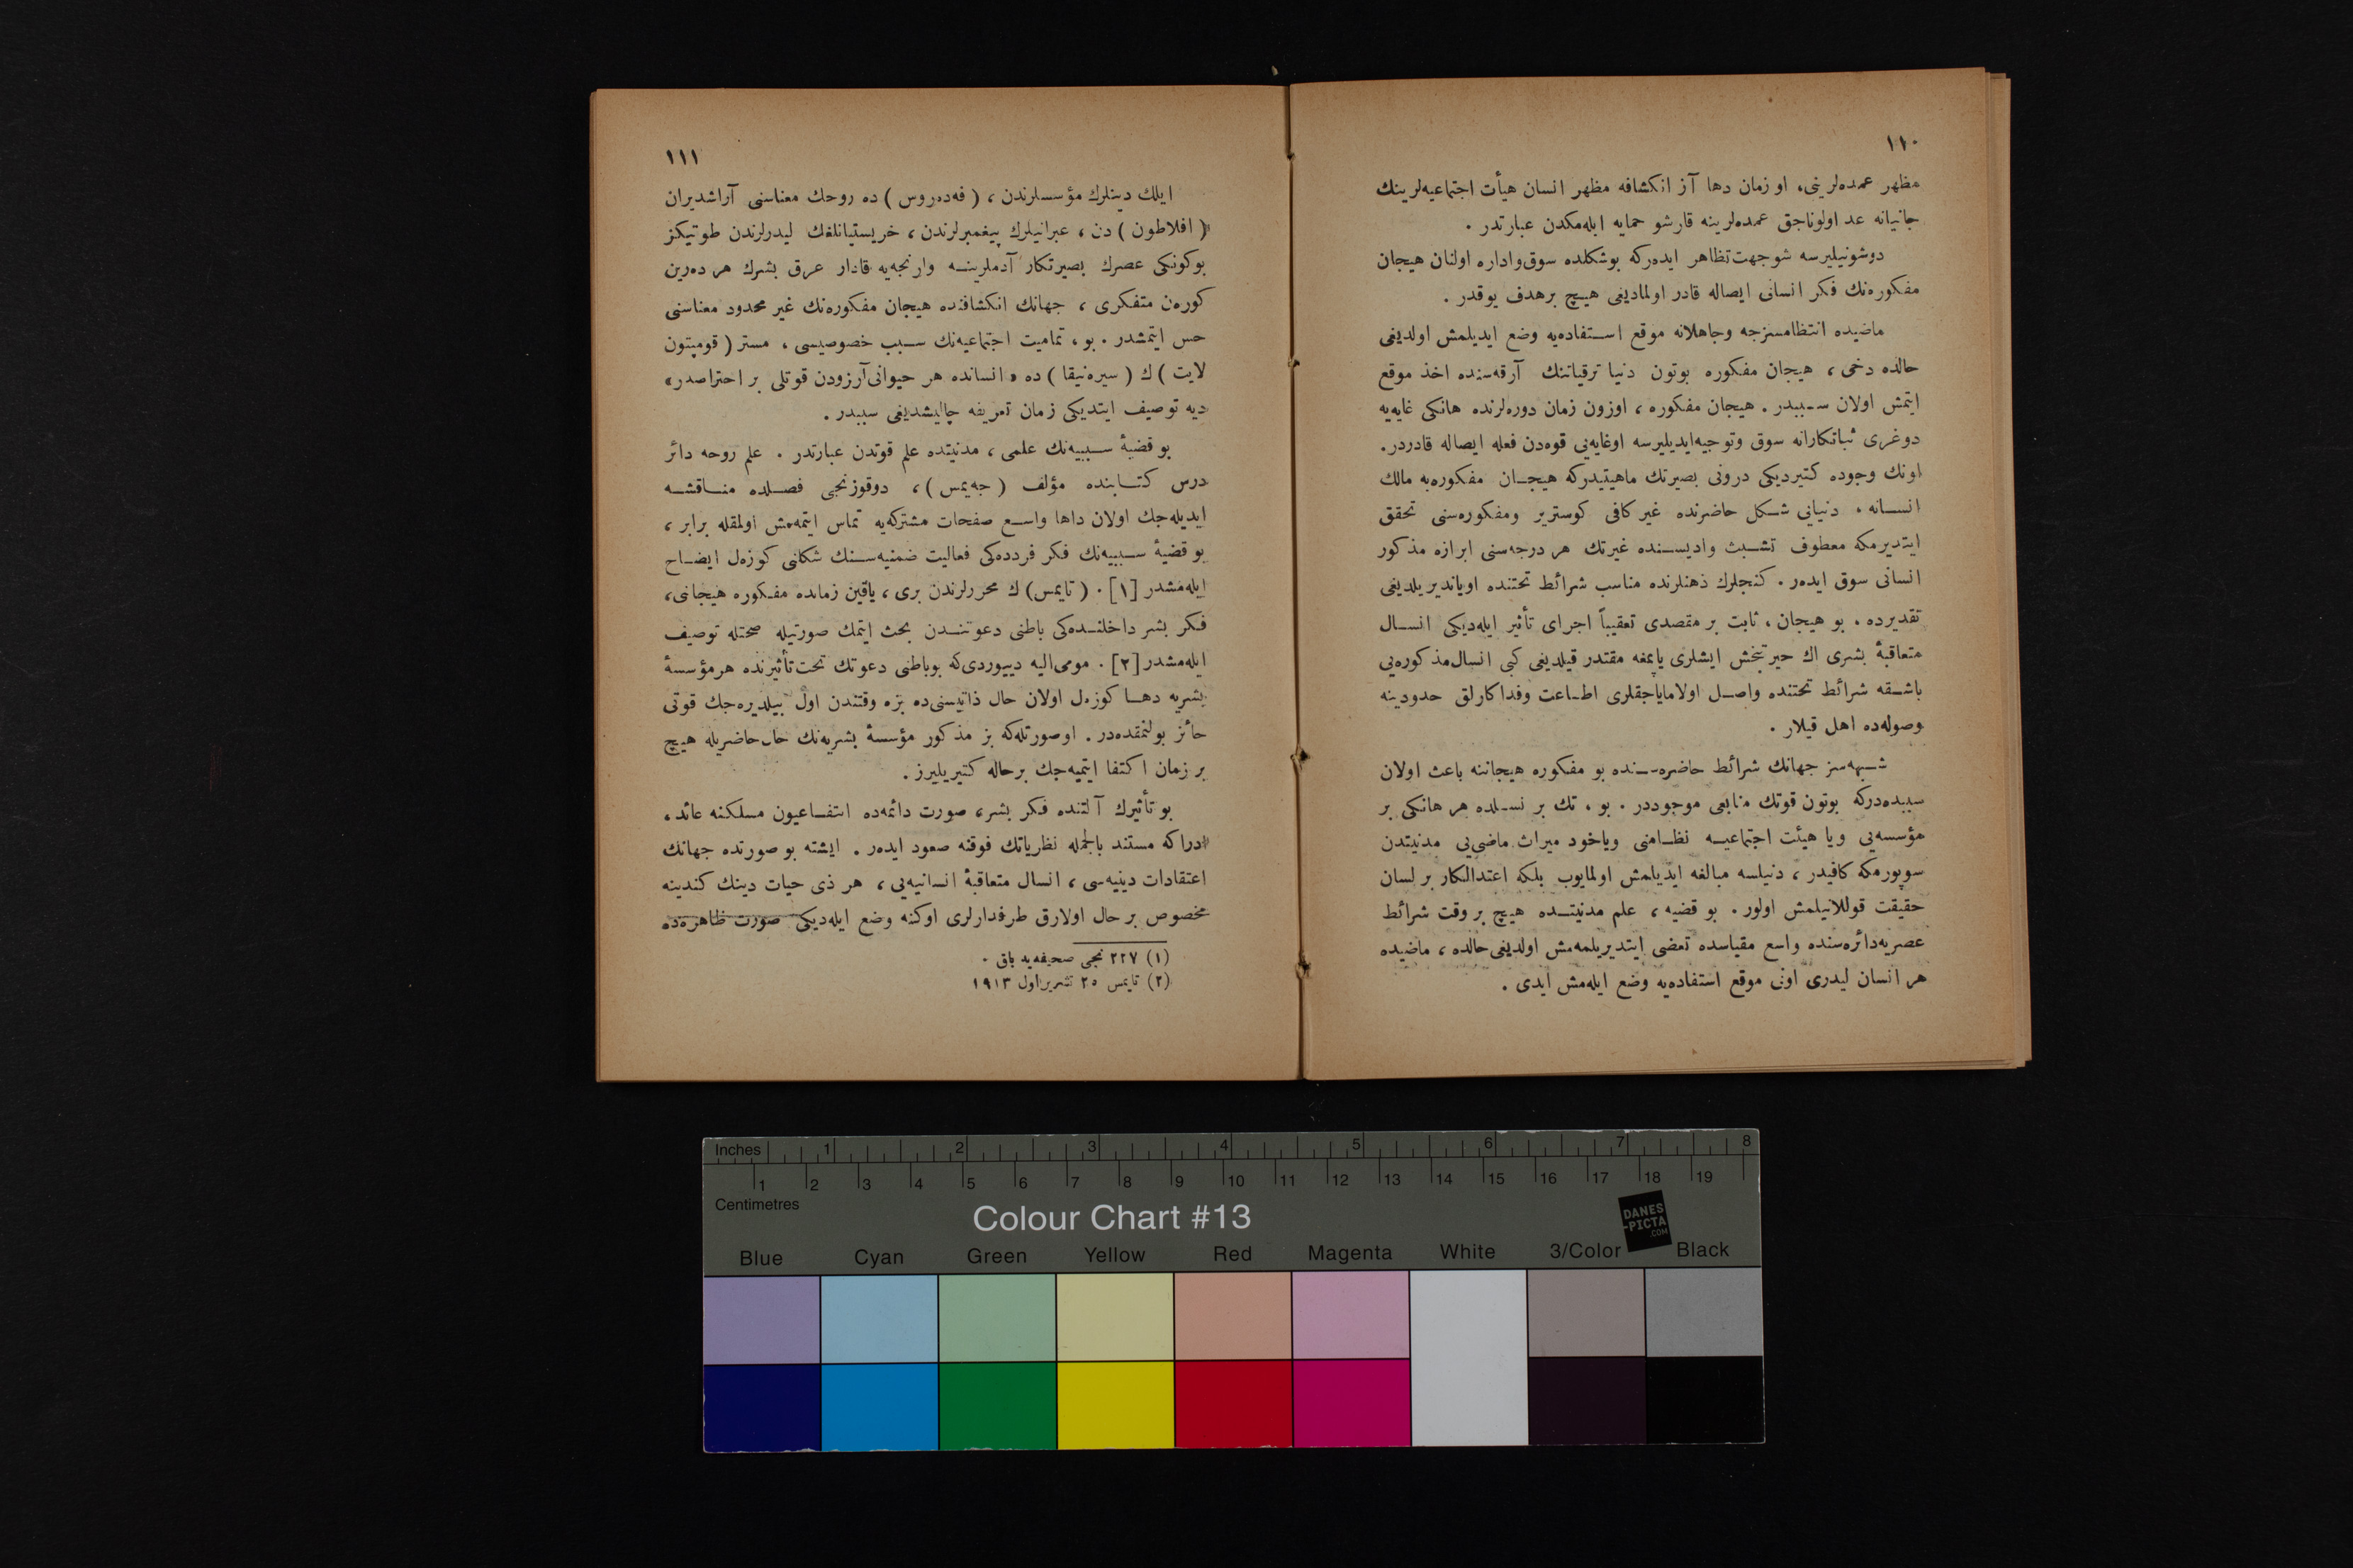 ١١٠
مظهر عمده‌لرینی، او زمان دها آز انکشافه مظهر انسان هیأت اجتماعیه‌لرینك
جانیانه عد اولوناجق عمده‌لرینه قارشو حمایه ایله‌مکدن عبارتدر .
دوشونیلیرسه شوجهت تظاهر ایده‌رکه بوشکلده سوق واداره اولنان هیجان
مفکوره‌نك فکر انسانی ایصاله قادر اولمادیغی هیچ برهدف یوقدر .
ماضیده انتظامسزجه وجاهلانه موقع استفاده‌یه وضع ایدیلمش اولدیغی
حالده دخی ، هیجان مفکوره بوتون دنیا ترقیاتنك آرقه‌سنده اخذ موقع
ایتمش اولان سببدر . هیجان مفکوره ، اوزون زمان دوره‌لرنده هانکی غایه‌یه
دوغری ثباتکارانه سوق وتوجیه‌ایدیلیرسه اوغایه‌یی قوه‌دن فعله ایصاله قادردر.
اونك وجوده کتیردیکی درونی بصیرتك ماهیتیدرکه هیجان مفکوره‌یه مالك
انسانه ، دنیایی شکل حاضرنده غیر کافی کوستریر ومفکوره‌سنی تحقق
ایتدیرمکه معطوف تشبث وادیسنده غیرتك هر درجه‌سنی ابرازه مذکور
انسانی سوق ایده‌ر . کنجلرك ذهنلرنده مناسب شرائط تحتنده اویاندیریلدیغی
تقدیرده ، بو هیجان ، ثابت بر مقصدی تعقیباً اجرای تأثیر ایله‌دیکی انسال
متعاقبهٔ بشری اك حیرتبخش ایشلری یاپمغه مقتدر قیلدیغی کبی انسال‌مذکوره‌یی
باشقه شرائط تحتنده واصل اولامایاجقلری اطاعت وفداکارلق حدودینه
وصوله‌ده اهل قیلار .
شبهه‌سز جهانك شرائط حاضره‌سنده بو مفکوره هیجاننه باعث اولان
سببده‌درکه بوتون قوتك منابعی موجوددر . بو ، تك بر نسلده هر هانکی بر
مؤسسه‌یی ویا هیئت اجتماعیه نظامنی ویاخود میراث ماضی‌یی مدنیتدن
سوپورمکه کافیدر ، دنیلسه مبالغه ایدیلمش اولمایوب بلکه اعتدالکار بر لسان
حقیقت قوللانیلمش اولور . بو قضیه ، علم مدنیتده هیچ بر وقت شرائط
عصریه‌دائره‌سنده واسع مقیاسده تعضی ایتدیریلمه‌مش اولدیغی حالده ، ماضیده
هر انسان لیدری اونی موقع استفاده‌یه وضع ایله‌مش ایدی .
١١١
ایلك دینلرك مؤسسلرندن ، ( فه‌ده‌روس ) ده روحك معناسنی آراشدیران
( افلاطون ) دن ، عبرانیلرك پیغمبرلرندن ، خریستیانلغك لیدرلرندن طوتیکز
بوکونکی عصرك بصیرتکار آدملرینه وارنجه‌یه قادار عرق بشرك هر ده‌رین
کوره‌ن متفکری ، جهانك انکشافنده هیجان مفکوره‌نك غیر محدود معناسنی
حس ایتمشدر . بو ، تمامیت اجتماعیه‌نك سبب خصوصیسی ، مستر ( قومپتون
لایت ) ك ( سیره‌نیقا ) ده « انسانده هر حیوانی آرزودن قوتلی بر احتراصدر »
دیه توصیف ایتدیکی زمان تعریفه چالیشدیغی سببدر .
بو قضیهٔ سببیه‌نك علمی ، مدنیتده علم قوتدن عبارتدر . علم روحه دائر
درس کتابنده مؤلف ( جه‌یمس ) ، دوقوزنجی فصلده مناقشه
ایدیله‌جك اولان داها واسع صفحات مشترکه‌یه تماس ایتمه‌مش اولمقله برابر ،
بو قضیهٔ سببیه‌نك فکر فردده‌کی فعالیت ضمنیه‌سنك شکلنی کوزه‌ل ایضاح
ایله‌مشدر [١] . ( تایمس ) ك محررلرندن بری ، یاقین زمانده مفکوره هیجانی،
فکر بشر داخلنده‌کی باطنی دعوتندن بحث ایتمك صورتیله صحتله توصیف
ایله‌مشدر [٢] . مومی‌الیه دییوردی‌که بوباطنی دعوتك تحت تأثیرنده هرمؤسسهٔ
بشریه دها کوزه‌ل اولان حال ذاتیسنی‌ده بزه وقتندن اول بیلدیره‌جك قوتی
حائز بولنمقده‌در . اوصورتله‌که بز مذکور مؤسسهٔ بشریه‌نك حال‌حاضریله هیچ
بر زمان اکتفا ایتمیه‌جك برحاله کتیریلیرز .
بو تأثیرك آلتنده فکر بشر، صورت دائمه‌ده انتفاعیون مسلکنه عائد ،
ادراکه مستند بالجمله نظریاتك فوقنه صعود ایده‌ر . ایشته بو صورتده جهانك
اعتقادات دینیه‌سی ، انسال متعاقبهٔ انسانیه‌یی ، هر ذی حیات دینك کندینه
مخصوص بر حال اولارق طرفدارلری اوکنه وضع ایله‌دیکی صورت ظاهره‌ده
(١) ٢٢٧ نجی صحیفه‌یه باق .
(٢) تایمس ٢٥ تشرین‌اول ١٩١٣
Inches 1 2 3 4 5 6 7 8
1 2 3 4 5 6 7 8 9 10 11 12 13 14 15 16 17 18 19
Centimetres
Colour Chart #13
DANES
-PICTA
.COM
Blue Cyan Green Yellow Red Magenta White 3/Color Black